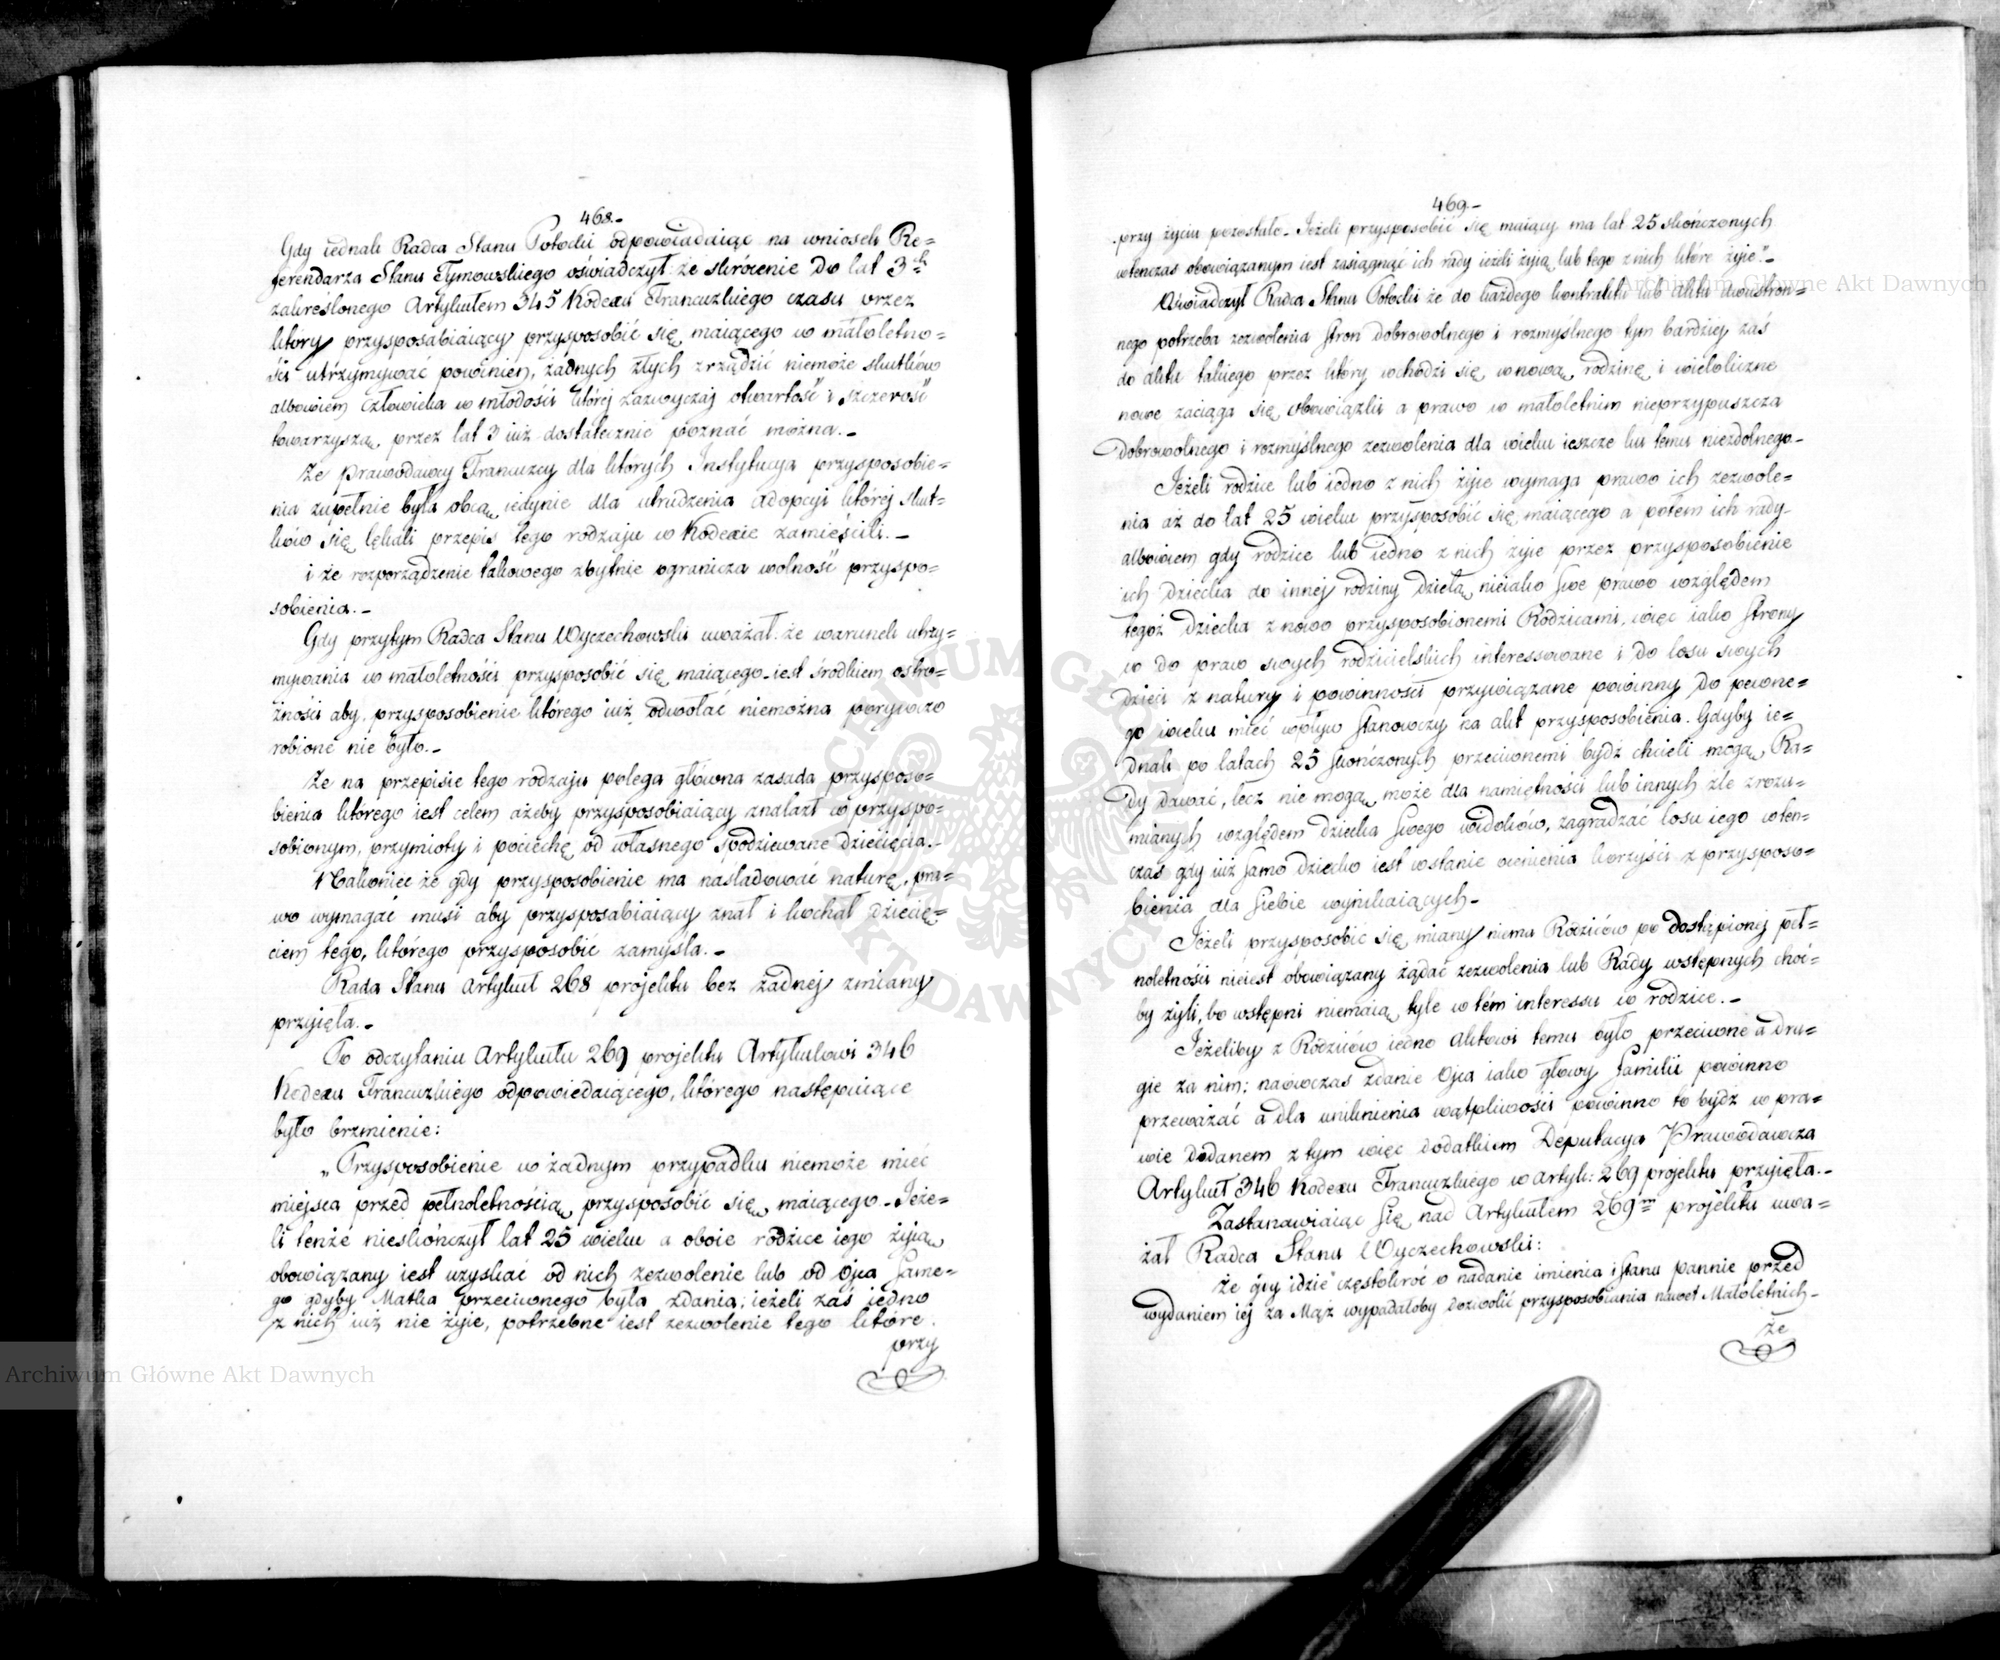 468.-
Gdy iednak Radca Stanu Potocki odpowiadaiąc na wniosek Re=
ferendarza Stanu Tymowskiego oświadczył: że skrócenie do lat 3ch
zakreślonego Artykułem 345 Kodexu Francuzkiego czasu przez
który przysposabiaiący przysposobić się maiącego w małoletno=
ści utrzymywać powinien, żadnych złych zrządzić niemoże skutków
albowiem człowieka w młodości której zazwyczaj otwartość i szczerość
towarzyszą, przez lat 3 iuż dostatecznie poznać można.-
Że Prawodawcy Francuzcy dla których Instytucya przysposobie=
nia zupełnie była obcą, iedynie dla utrudzenia adopcyi której skut=
ków się lękali przepis tego rodzaju w Kodexie zamieścili.-
i że rozporządzenie takowego zbytnie ogranicza wolność przyspo=
sobienia.-
Gdy przytym Radca Stanu Wyczechowski uważał: że warunek utrzy=
mywania w małoletności przysposobić się maiącego iest środkiem ostro=
żności aby przysposobienie którego iuż odwołać niemożna porywczo
robione nie było.-
Że na przepisie tego rodzaju polega główna zasada przysposo=
bienia którego iest celem ażeby przysposobiaiący znalazł w przyspo=
sobionym, przymioty i pociechę od własnego spodziewane dziecięcia.-
Nakoniec że gdy przysposobienie ma naśladować naturę, pra=
wo wymagać musi aby przysposabiaiący znał i kochał dziecię=
ciem tego, którego przysposobić zamyśla.-
Rada Stanu Artykuł 268 projektu bez żadnej zmiany
przyięła.-
Po odczytaniu Artykułu 269 projektu Artykułowi 346
Kodexu Francuzkiego odpowiedaiącego, którego następuiące
było brzmienie:
„Przysposobienie w żadnym przypadku niemoże mieć
miejsca przed pełnoletnością przysposobić się maiącego. Jeże=
li tenże nieskończył lat 25 wieku a oboie rodzice iego żyią
obowiązany iest uzyskać od nich zezwolenie lub od Ojca same=
go gdyby Matka przeciwnego była zdania; ieżeli zaś iedno
z nich iuż nie żyie, potrzebne iest zezwolenie tego które
przy
469.-
przy życiu pozostało. Jeżeli przysposobić się maiący ma lat 25 skończonych
wtenczas obowiązanym iest zasiągnąć ich rady ieżeli żyią lub tego z nich które żyie".-
Oświadczył Radca Stanu Potocki że do każdego kontraktu lub aktu dwustron=
nego potrzeba zezwolenia stron dobrowolnego i rozmyślnego tym bardziej zaś
do aktu takiego przez który wchodzi się w nową rodzinę i wieloliczne
nowe zaciąga się obowiązki a prawo w małoletnim nieprzypuszcza
dobrowolnego i rozmyślnego zezwolenia dla wieku ieszcze ku temu niezdolnego.-
Jeżeli rodzice lub iedno z nich żyie wymaga prawo ich zezwole=
nia aż do lat 25 wieku przysposobić się maiącego a potem ich rady
albowiem gdy rodzice lub iedno z nich żyie przez przysposobienie
ich dziecka do innej rodziny dzielą nieiako swe prawo względem
tegoż dziecka z nowo przysposobionemi Rodzicami, więc iako strony
w do praw swych rodzicielskich interessowane i do losu swych
dzieci z natury i powinności przywiązane powinny do pewne=
go wieku mieć wpływ stanowczy na akt przysposobienia. Gdyby ie=
dnak po latach 25 skończonych przeciwnemi bydź chcieli mogą Ra=
dy dawać, lecz nie mogą może dla namiętności lub innych źle zrozu=
mianych względem dziecka swego widoków, zagradzać losu iego wten=
czas gdy iuż samo dziecko iest wstanie ocenienia korzyści z przysposo=
bienia dla siebie wynikaiących.-
Jeżeli przysposobić się miany niema Rodziców po dostąpionej peł=
noletności nieiest obowiązany żądać zezwolenia lub Rady wstępnych choć=
by żyli, bo wstępni niemaią tyle w tém interessu co rodzice.-
Jeżeliby z Rodziców iedno Aktowi temu było przeciwne a dru=
gie za nim; naówczas zdanie Ojca iako głowy familii powinno
przeważać a dla uniknienia wątpliwości powinno to bydź w pra=
wie dodanem z tym więc dodatkiem Deputacya Prawodawcza
Artykuł 346 Kodexu Francuzkiego w artyk: 269 projektu przyięła.-
Zastanawiaiąc się nad Artykułem 269m projektu uwa=
żał Radca Stanu Wyczechowski:
Że gdy idzie częstokroć o nadanie imienia i stanu pannie przed
wydaniem iej za Mąż wypadałoby dozwolić przysposobiania nawet Małoletnich.-
Że
Archiwum Główne Akt Dawnych
Archiwum Główne Akt Dawnych
ARCHIWUM GŁÓWNE AKT DAWNYCH